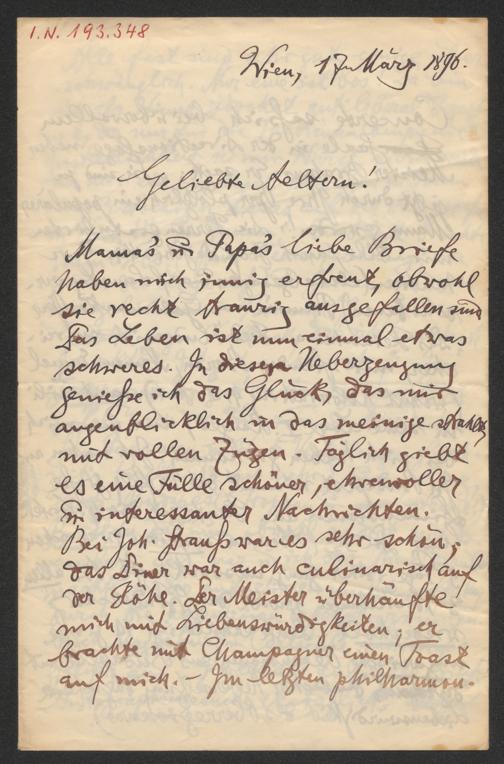 I.N. 193.348
Wien, 17 März 1896.
Geliebte Aeltern!
Mama's u. Papa's liebe Briefe
haben mich innig erfreut, obwohl
sie recht traurig ausgefallen sind
Das Leben ist nun einmal etwas
schweres. In dieser Ueberzeugung
genieße ich das Glück, das mir
augenblicklich in das meinige strahlt,
mit vollen Zügen. Täglich giebt
es eine Fülle schöner, ehrenvoller
u. interessanter Nachrichten.
Bei Joh. Strauss war es sehr schön;
das Diner war auch culinarisch auf
der Höhe. Der Meister überhäufte
mich mit Liebenswürdigkeiten; er
brachte mit Champagner einen Toast
auf mich. – Im letzten philharmon.